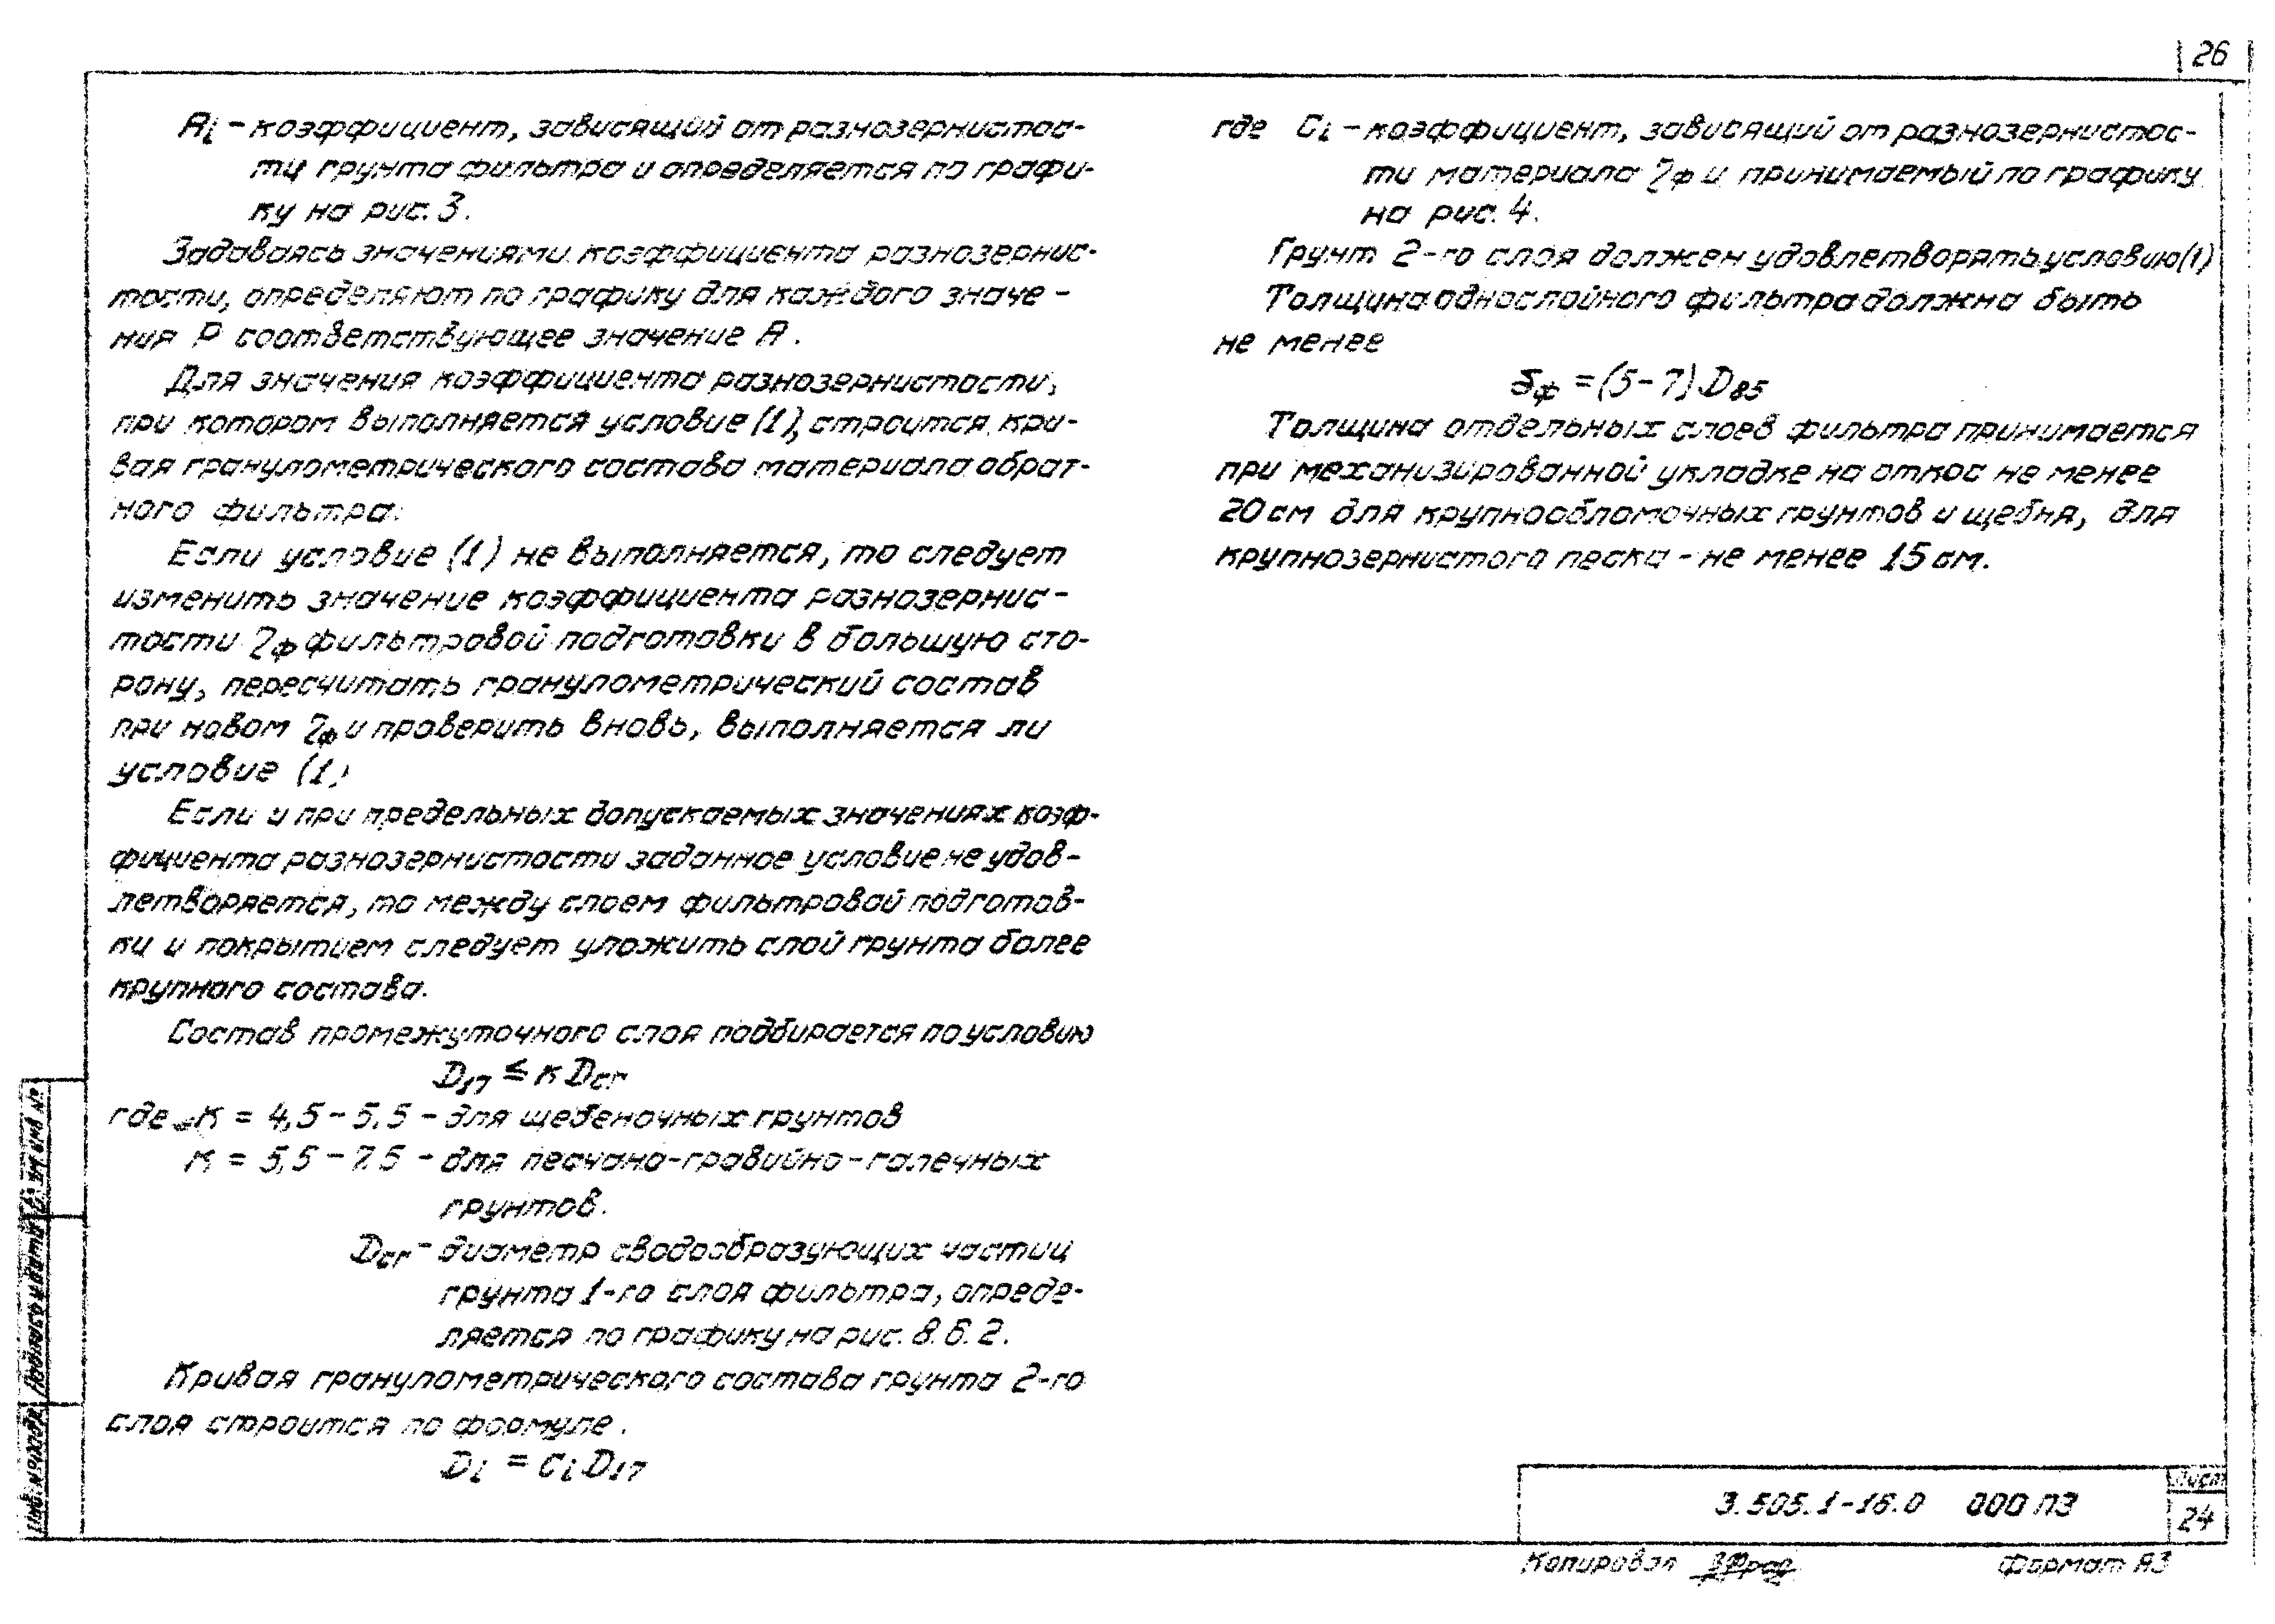 26
Ai – коэффициент, зависящий от разнозернистос-
ти грунта фильтра и определяется по графи-
ку на рис. 3.
Задаваясь значениями коэффициента разнозернис-
тости, определяют по графику для каждого значе-
ния P соответствующее значение A.
Для значения коэффициента разнозернистости,
при котором выполняется условие (1), строится кри-
вая гранулометрического состава материала обрат-
ного фильтра.
Если условие (1) не выполняется, то следует
изменить значение коэффициента разнозернис-
тости ηф фильтровой подготовки в большую сто-
рону, пересчитать гранулометрический состав
при новом ηф и проверить вновь, выполняется ли
условие (1)
Если и при предельных допускаемых значениях коэф-
фициента разнозернистости заданное условие не удов-
летворяется, то между слоем фильтровой подготов-
ки и покрытием следует уложить слой грунта более
крупного состава.
Состав промежуточного слоя подбирается по условию
D17 ≤ к Dсг
где к = 4,5 – 5,5 – для щебеночных грунтов
к = 5,5 – 7.5 – для песчано-гравийно-галечных
грунтов.
Dсг – диаметр сводообразующих частиц
грунта 1-го слоя фильтра, опреде-
ляется по графику на рис. 8.6.2.
Кривая гранулометрического состава грунта 2-го
слоя строится по формуле.
Di = Ci D17
где Ci – коэффициент, зависящий от разнозернистос-
ти материала ηф и принимаемый по графику
на рис. 4.
Грунт 2-го слоя должен удовлетворять условию (1)
Толщина однослойного фильтра должна быть
не менее
δф = (5-7) D85
Толщина отдельных слоев фильтра принимается
при механизированной укладке на откос не менее
20 см для крупнообломочных грунтов и щебня, для
крупнозернистого песка – не менее 15 см.
Инв. № подл. Подпись и дата Взам. инв. №
3.505.1-16.0 000 ПЗ
Лист
24
Копировал
Формат А3